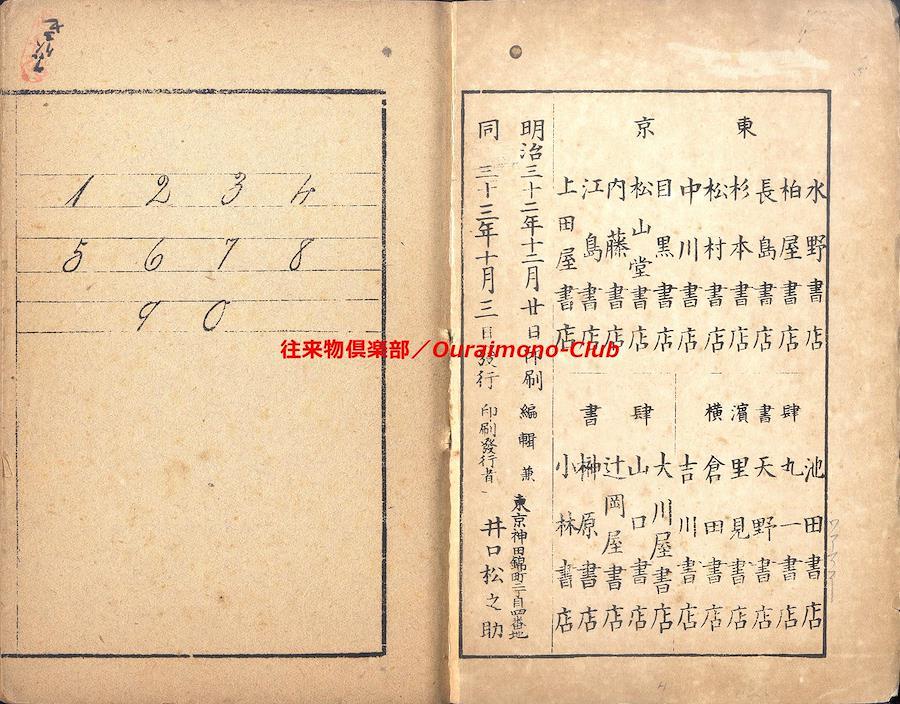 水野書店
柏屋書店
長島書店
東 杉本書店
松村書店
中川書店
目黒書店
京 松山堂書店
内藤書店
江島書店
上田屋書店
池田書店
肆 丸一書店
書 天野書店
濱 里見書店
横 倉田書店
吉川書店
大川屋書店
肆 山口書店
辻岡屋書店
書 榊原書店
小林書店
明治三十二年十二月廿日印刷
編輯兼
東京神田錦町二丁目四番地
同 三十三年十月三日發行
印刷發行者
井口松之助
1 2 3 4
5 6 7 8
9 0
往来物倶楽部／Ouraimono-Club